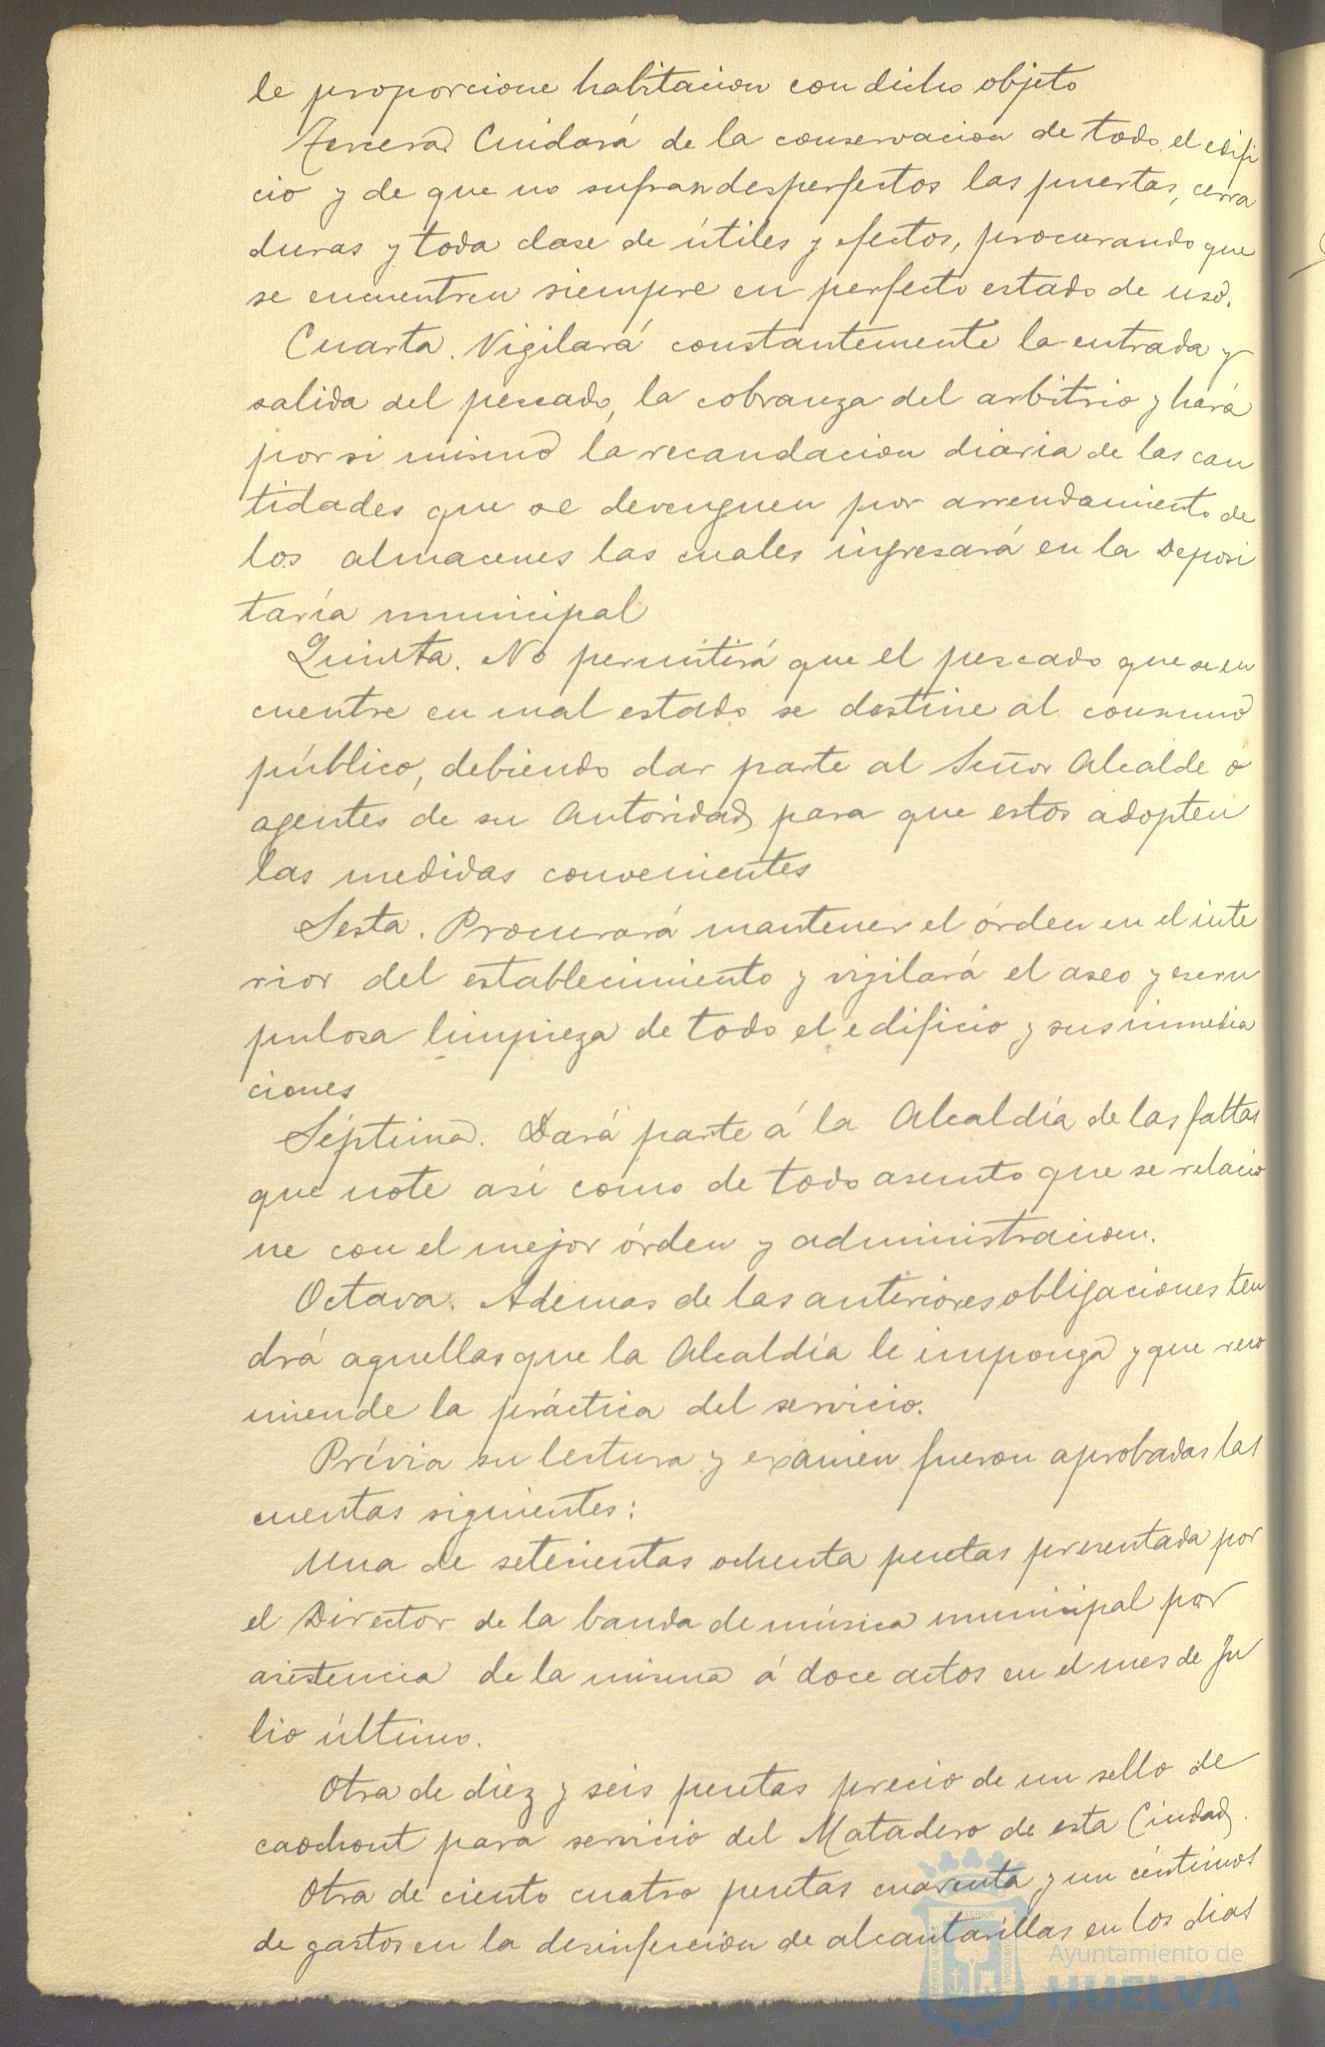 le proporcione habitacion con dicho objeto
Tercera. Cuidará de la conservacion de todo el edifi
cio y de que no sufran desperfectos las puertas, cerra
duras y toda clase de útiles y efectos, procurando que
se encuentren siempre en perfecto estado de uso.
Cuarta. Vigilará constantemente la entrada y
salida del pescado, la cobranza del arbitrio y hará
por si mismo la recaudacion diaria de las can
tidades que se devenguen por arrendamiento de
los almacenes las cuales ingresará en la Deposi
taría municipal
Quinta. No permitirá que el pescado que se en
cuentre en mal estado se destine al consumo
público, debiendo dar parte al Señor Alcalde ó
agentes de su Autoridad, para que estos adopten
las medidas convenientes
Sesta. Procurará mantener el órden en el inte
rior del establecimiento y vigilará el aseo y escru
pulosa limpieza de todo el edificio y sus inmedia
ciones
Séptima. Dará parte á la Alcaldía de las faltas
que note asi como de todo asunto que se relacio
ne con el mejor órden y administracion.
Octava. Ademas de las anteriores obligaciones ten
drá aquellas que la Alcaldía le imponga y que reco
miende la práctica del servicio.
Prévia su lectura y examen fueron aprobadas las
cuentas siguientes:
Una de setecientas ochenta pesetas presentada por
el Director de la banda de música municipal por
asistencia de la misma á doce actos en el mes de Ju
lio último.
Otra de diez y seis pesetas precio de un sello de
caochout para servicio del Matadero de esta Ciudad.
Otra de ciento cuatro pesetas cuarenta y un céntimos
de gastos en la desinfeccion de alcantarillas en los dias
Ayuntamiento de
HUELVA